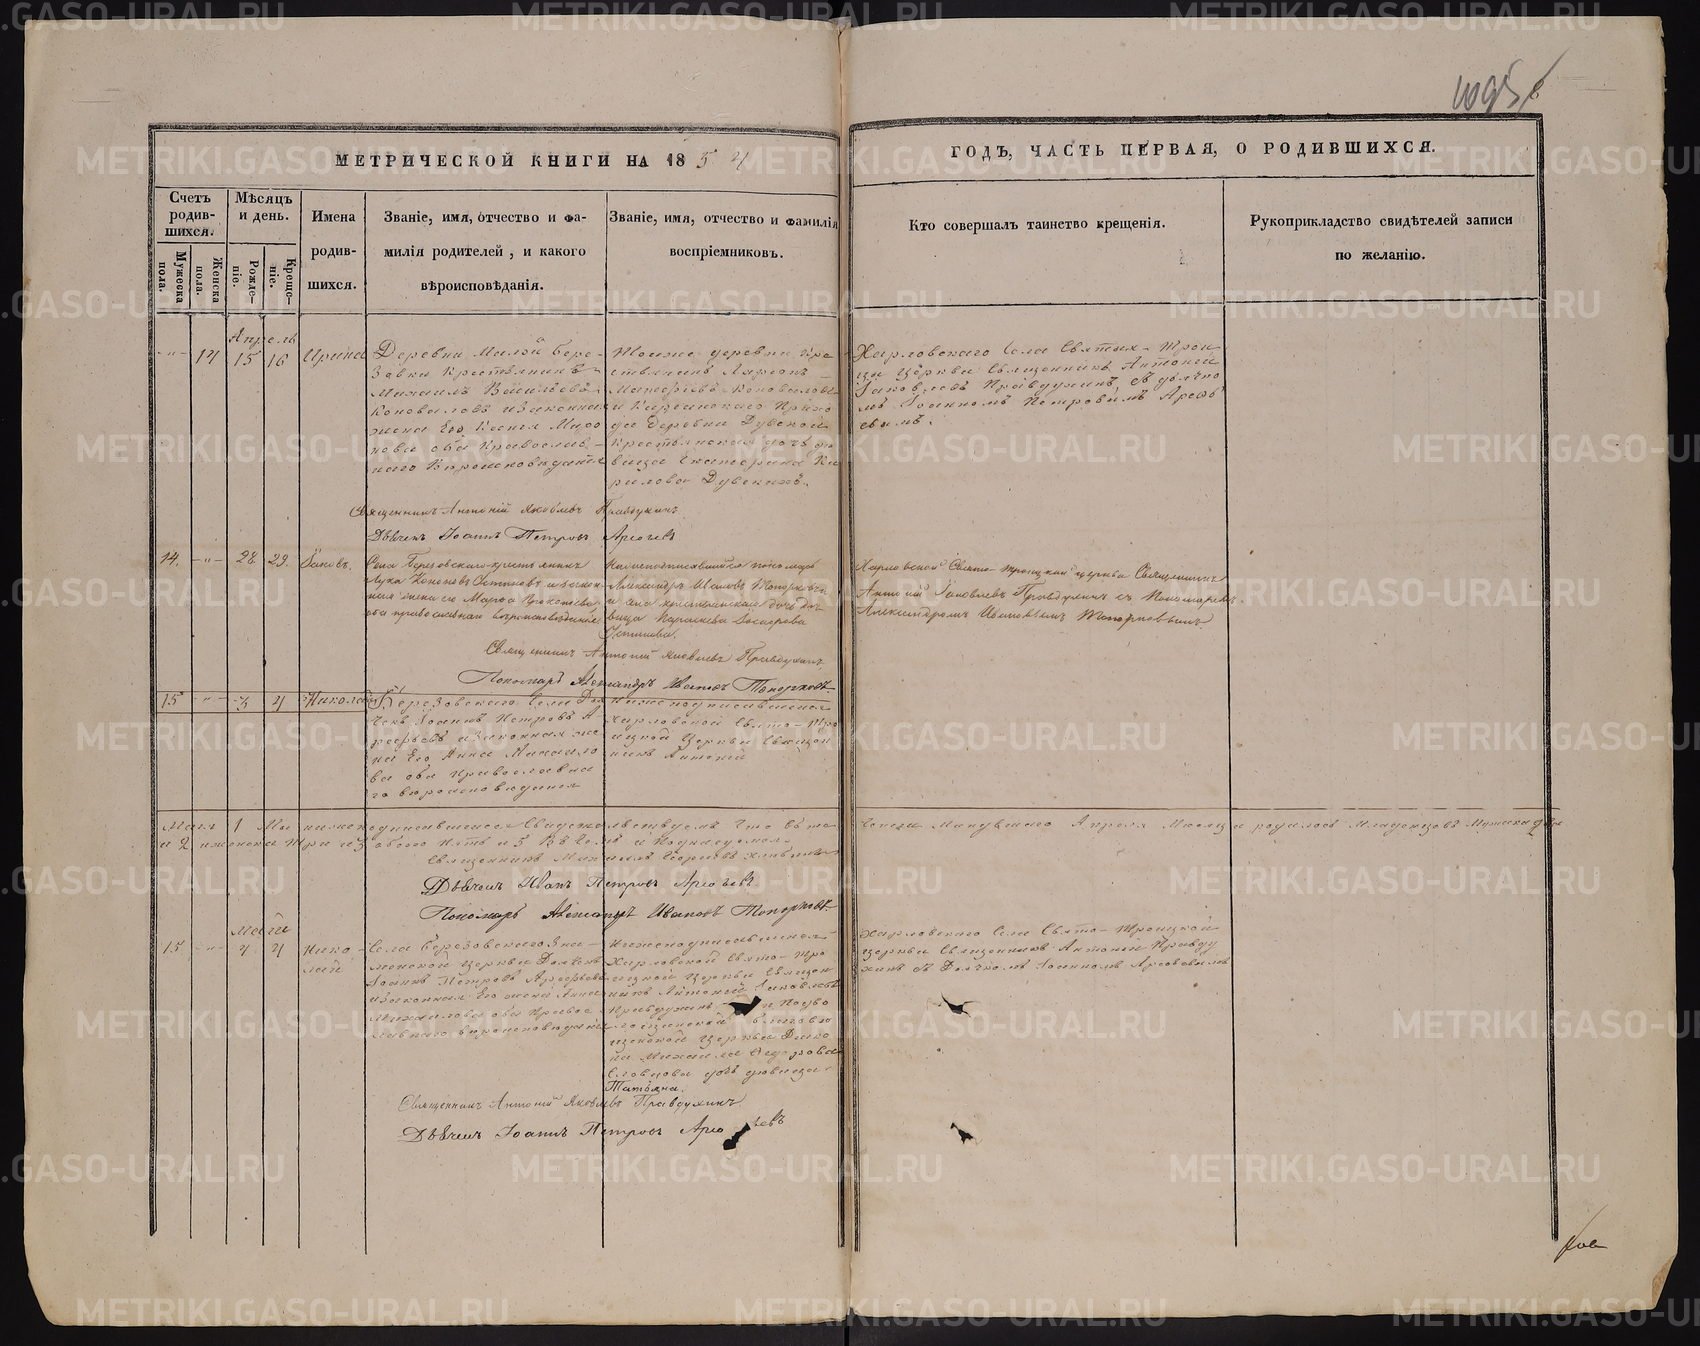 1095
МЕТРИЧЕСКОЙ КНИГИ НА 1854
ГОДЪ, ЧАСТЬ ПЕРВАЯ, О РОДИВШИХСЯ.
Счетъ родив-шихся.
Мужеска пола.
Женска пола.
Мѣсяцъ и день.
Рожде-ніе.
Креще-ніе.
Имена
родив-
шихся.
Званіе, имя, отчество и фа-
милія родителей, и какого
вѣроисповѣданія.
Званіе, имя, отчество и фамилія
воспріемниковъ.
Кто совершалъ таинство крещенія.
Рукоприкладство свидѣтелей записи
по желанію.
Апрель
14 15 16 Ирина
Деревни Малой Бере-
зовки Крестьянинъ
Михаилъ Васильевъ
Коноваловъ и законная
жена Его Миро
нова оба Православ-
наго Вѣроисповѣданія
Тоиже деревни Кре
стьянинъ
Коноваловъ
и Прихо
да деревни
Крестьянская дочь дѣ
вица Екатерина Ки
рилова
Харловскаго Села Святыя Трои
цы Церкви Священникъ Антоній
Іаковлевъ Правдухинъ, съ дьячко
мъ Іоанномъ Петровымъ Арефь
евымъ.
Священникъ Антоній Яковлевъ Правдухинъ
Дьячекъ Іоаннъ Петровъ Арефьевъ
14. 28. 29. Іаковъ.
Села Березовскаго крестьянинъ
Лука и закон-
ная жена его Марѳа
оба православнаго вѣроисповѣданія
Нижеподписавшійся пономарь
Александръ Ивановъ Топорковъ
и села крестьянская дочь дѣ-
вица Параскева
Устинова.
Харловской Свято-Троицкой церкви Священникъ
Антоній Іаковлевъ Правдухинъ съ Пономаремъ
Александромъ Ивановымъ Топорковымъ
Священникъ Антоній Яковлевъ Правдухинъ
Пономарь Александръ Ивановъ Топорковъ
15 3 4 Николай
Березовскаго Села Дья
чекъ Іоаннъ Петровъ А
рефьевъ и законная же
на Его Анна Михаило
ва оба Православна
го вѣроисповѣданія
Нижеподписавшійся
Харловской Свято-Тро
ицкой Церкви Священ
никъ Антоній
Маія 1 Мы нижеподписавшіеся Свидетельствуемъ что въ те
ченіи Минувшаго Апреля Месяца родилось Младенцовъ Мужска два
и 2 женска три из обоего пять и 5
Священникъ
Дьячекъ Иванъ Петровъ Арефьевъ
Пономарь Александръ Ивановъ Топорковъ
Маія
15 4 4 Нико-
лай
Села Березовскаго Зна-
менской Церкви Дьячекъ
Іоаннъ Петровъ Арефьевъ
и законная Его жена Анна
Михаилова оба Правос-
лавнаго вѣроисповѣданія
Нижеподписавшійся
Харловской Свято-Тро
ицкой Церкви Священ
никъ Антоній Іаковлевъ
Правдухинъ и
Церкви
Михаила Федорова
дочь дѣвица
Татьяна.
Харловскаго Села Свято-Троицкой
церкви Священникъ Антоній Правду
хинъ съ Дьячкомъ Іоанномъ Арефьевымъ
Священникъ Антоній Яковлевъ Правдухинъ
Дьячекъ Іоаннъ Петровъ Арефьевъ
METRIKI.GASO-URAL.RU